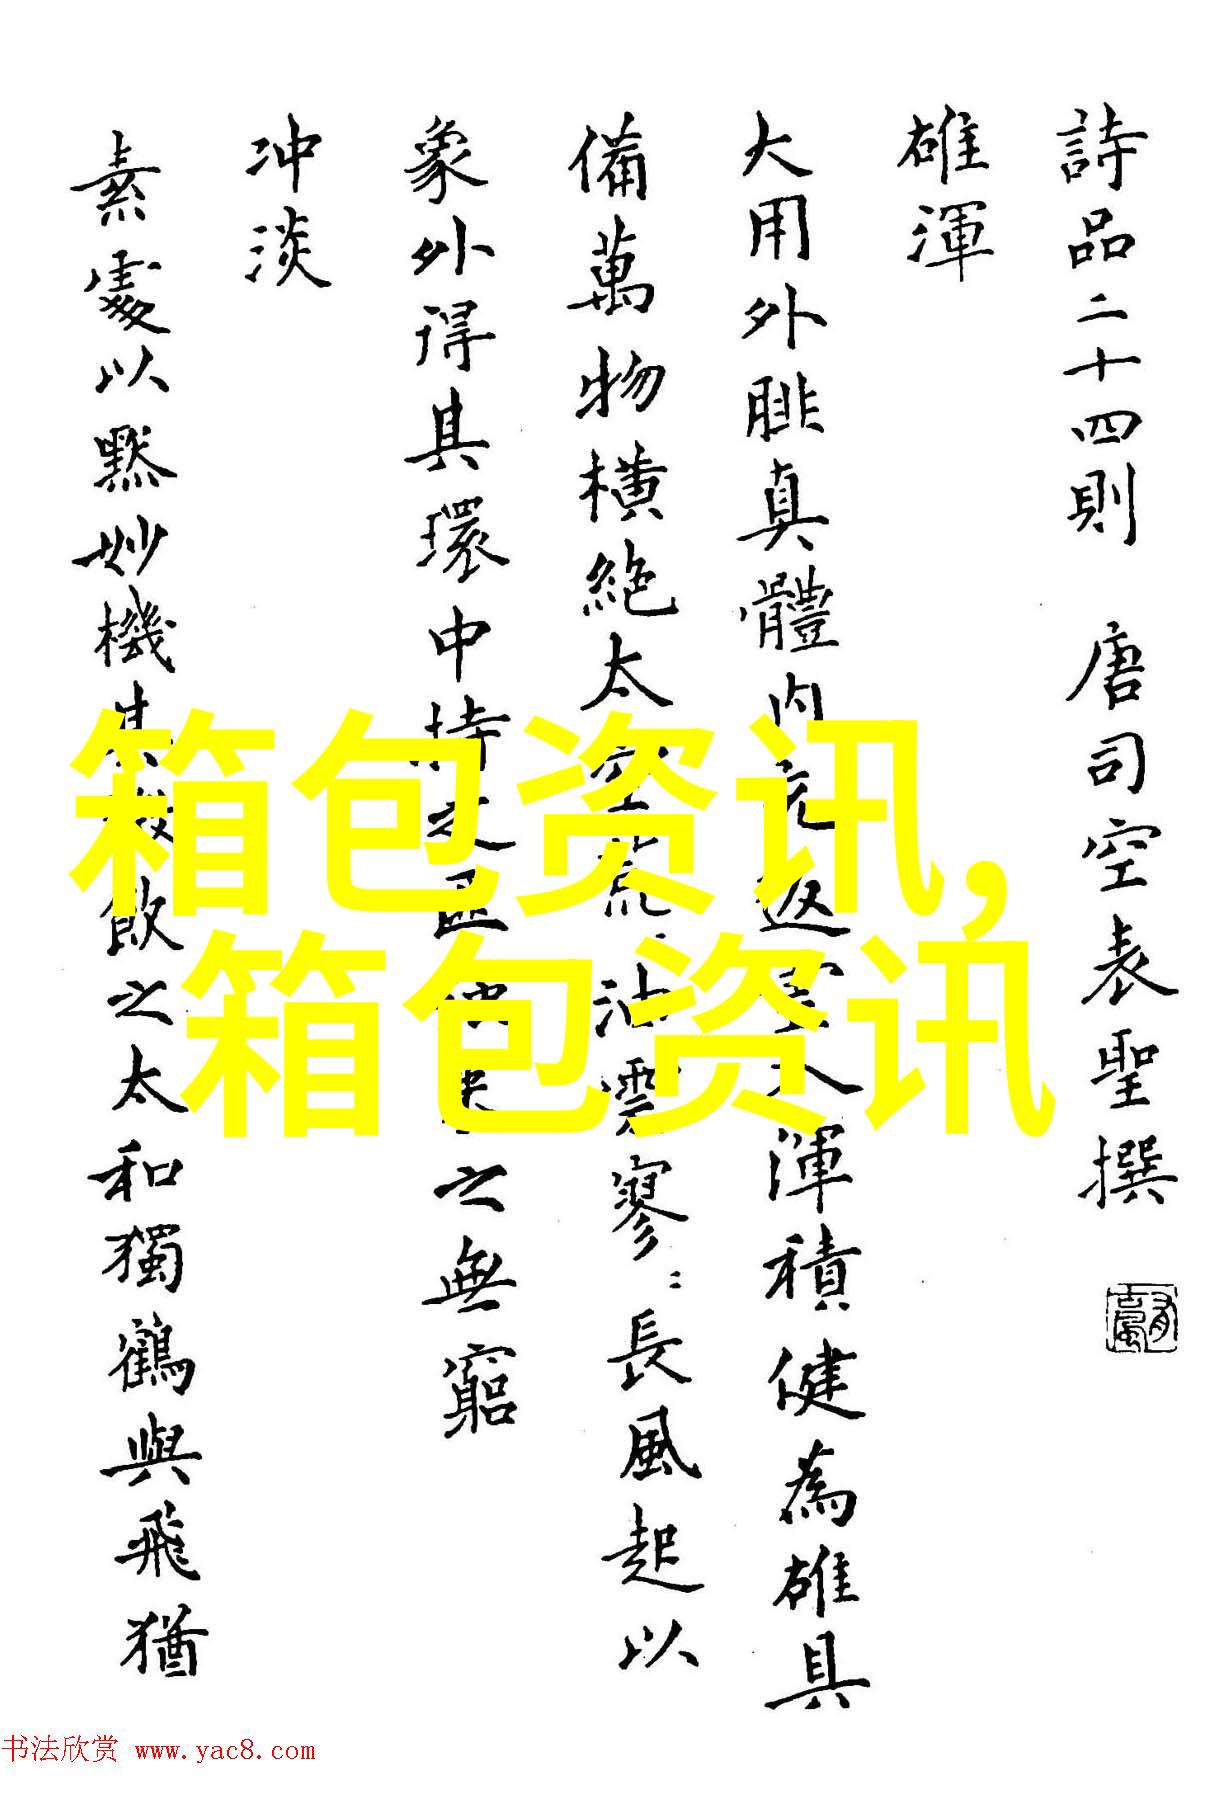 詩品二十四則 唐司空表聖撰
雄渾
大用外腓真體内充返入渾積健為雄具
備萬物橫絕太空荒:油雲寥:長風起以
象外得其環中持之匪來之無窮
冲淡
素處以默妙機其飲之太和獨鶴與飛猶
箱包资讯,
箱包资讯
书法欣赏 www.yac8.com